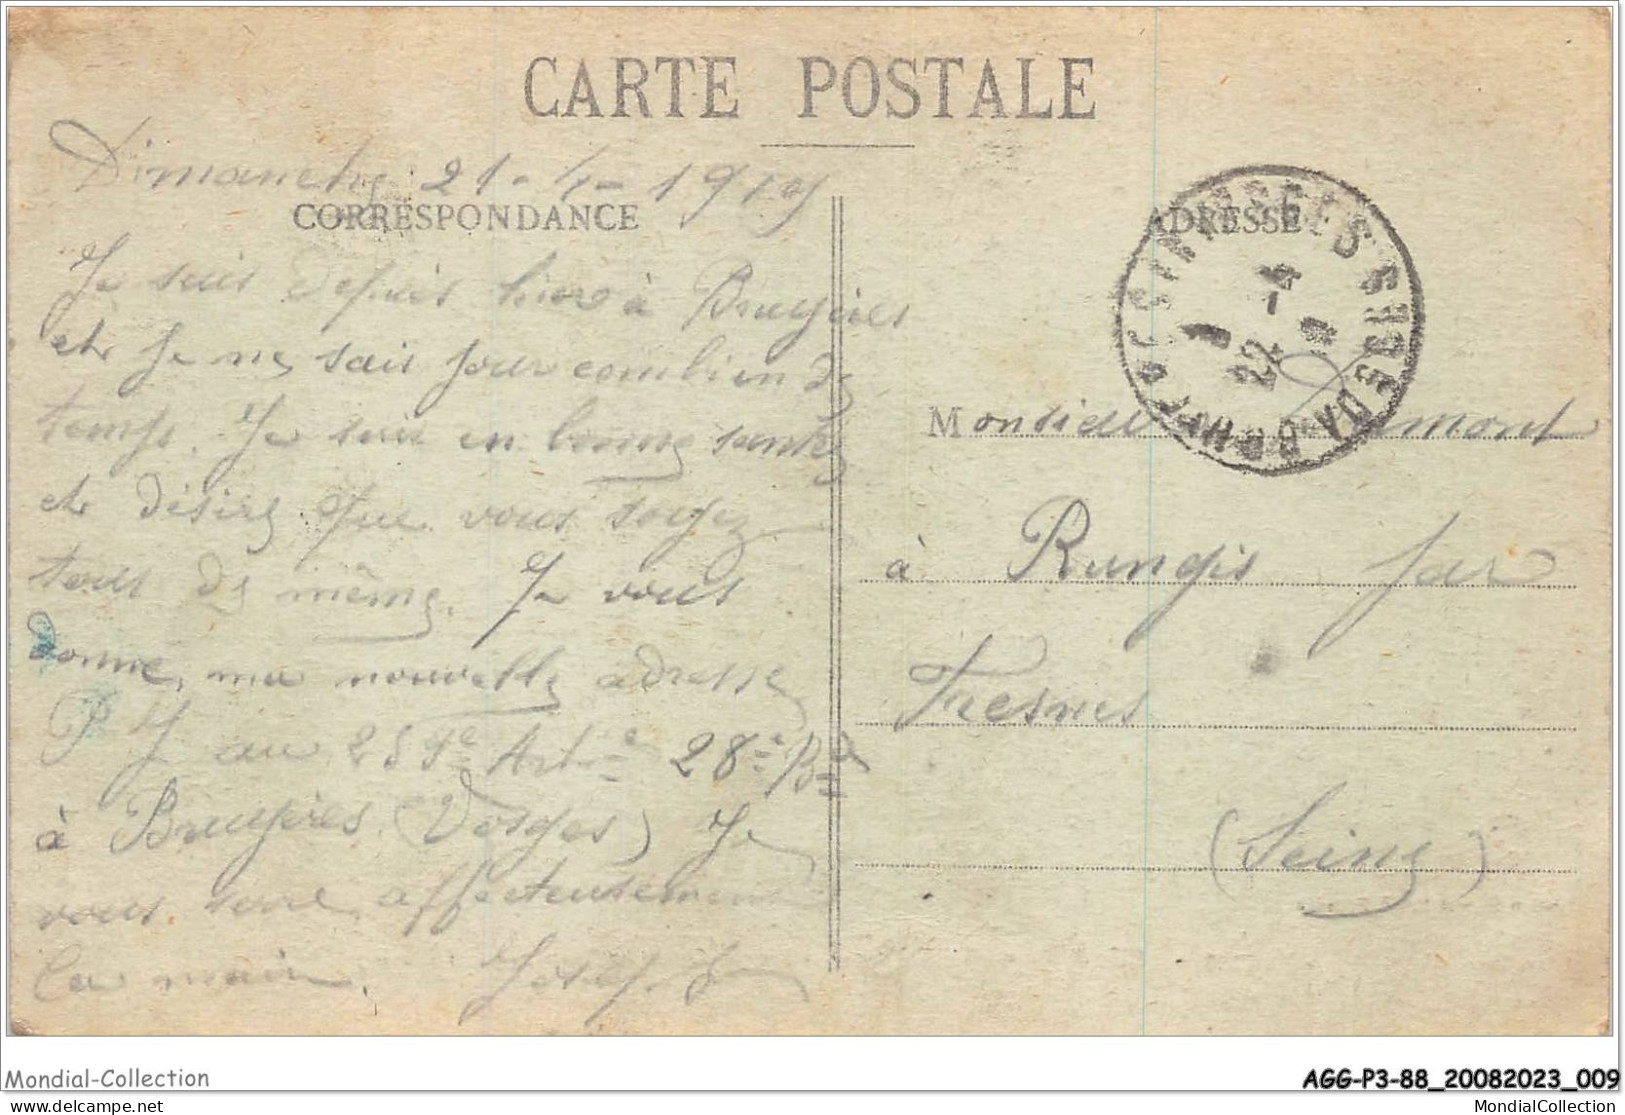 CARTE POSTALE
Dimanche 21-4-1919
CORRESPONDANCE
ADRESSE
Je suis depuis hier à Bruyères
et je ne sais pour combien de
temps. Je suis en bonne santé
et désire que vous soyez
tous de même. Je vous
donne ma nouvelle adresse
P J au 25 Art 28e Bie
à Bruyères (Vosges) Je
vous serre affectueusement
la main. Josep. J
22 -4
Monsieur mont
à Rungis par
Fresnes
(Seine)
Mondial-Collection
AGG-P3-88_20082023_009
www.delcampe.net
MondialCollection